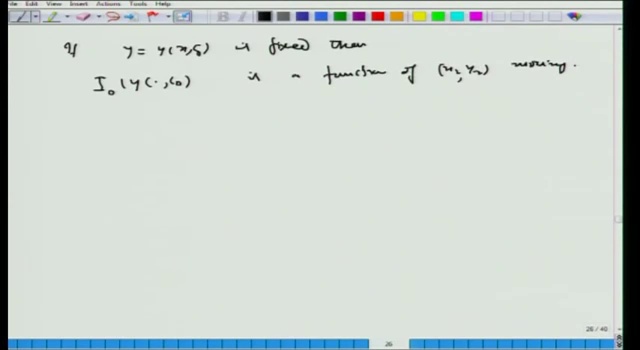 File Edit View Insert Actions Tools Help
If y = y(x, c₀) is fixed then
I₀(y(·, c₀)) is a function of (x₂, y₂) moving.
26 / 40
26